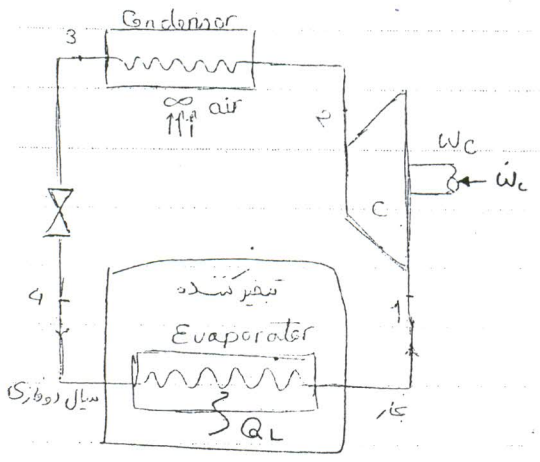 Condensor
3
∞ air
2
WC
Ẇc
C
4
تبخیر کننده
1
Evaporater
سیال دوفازی
بخار
QL